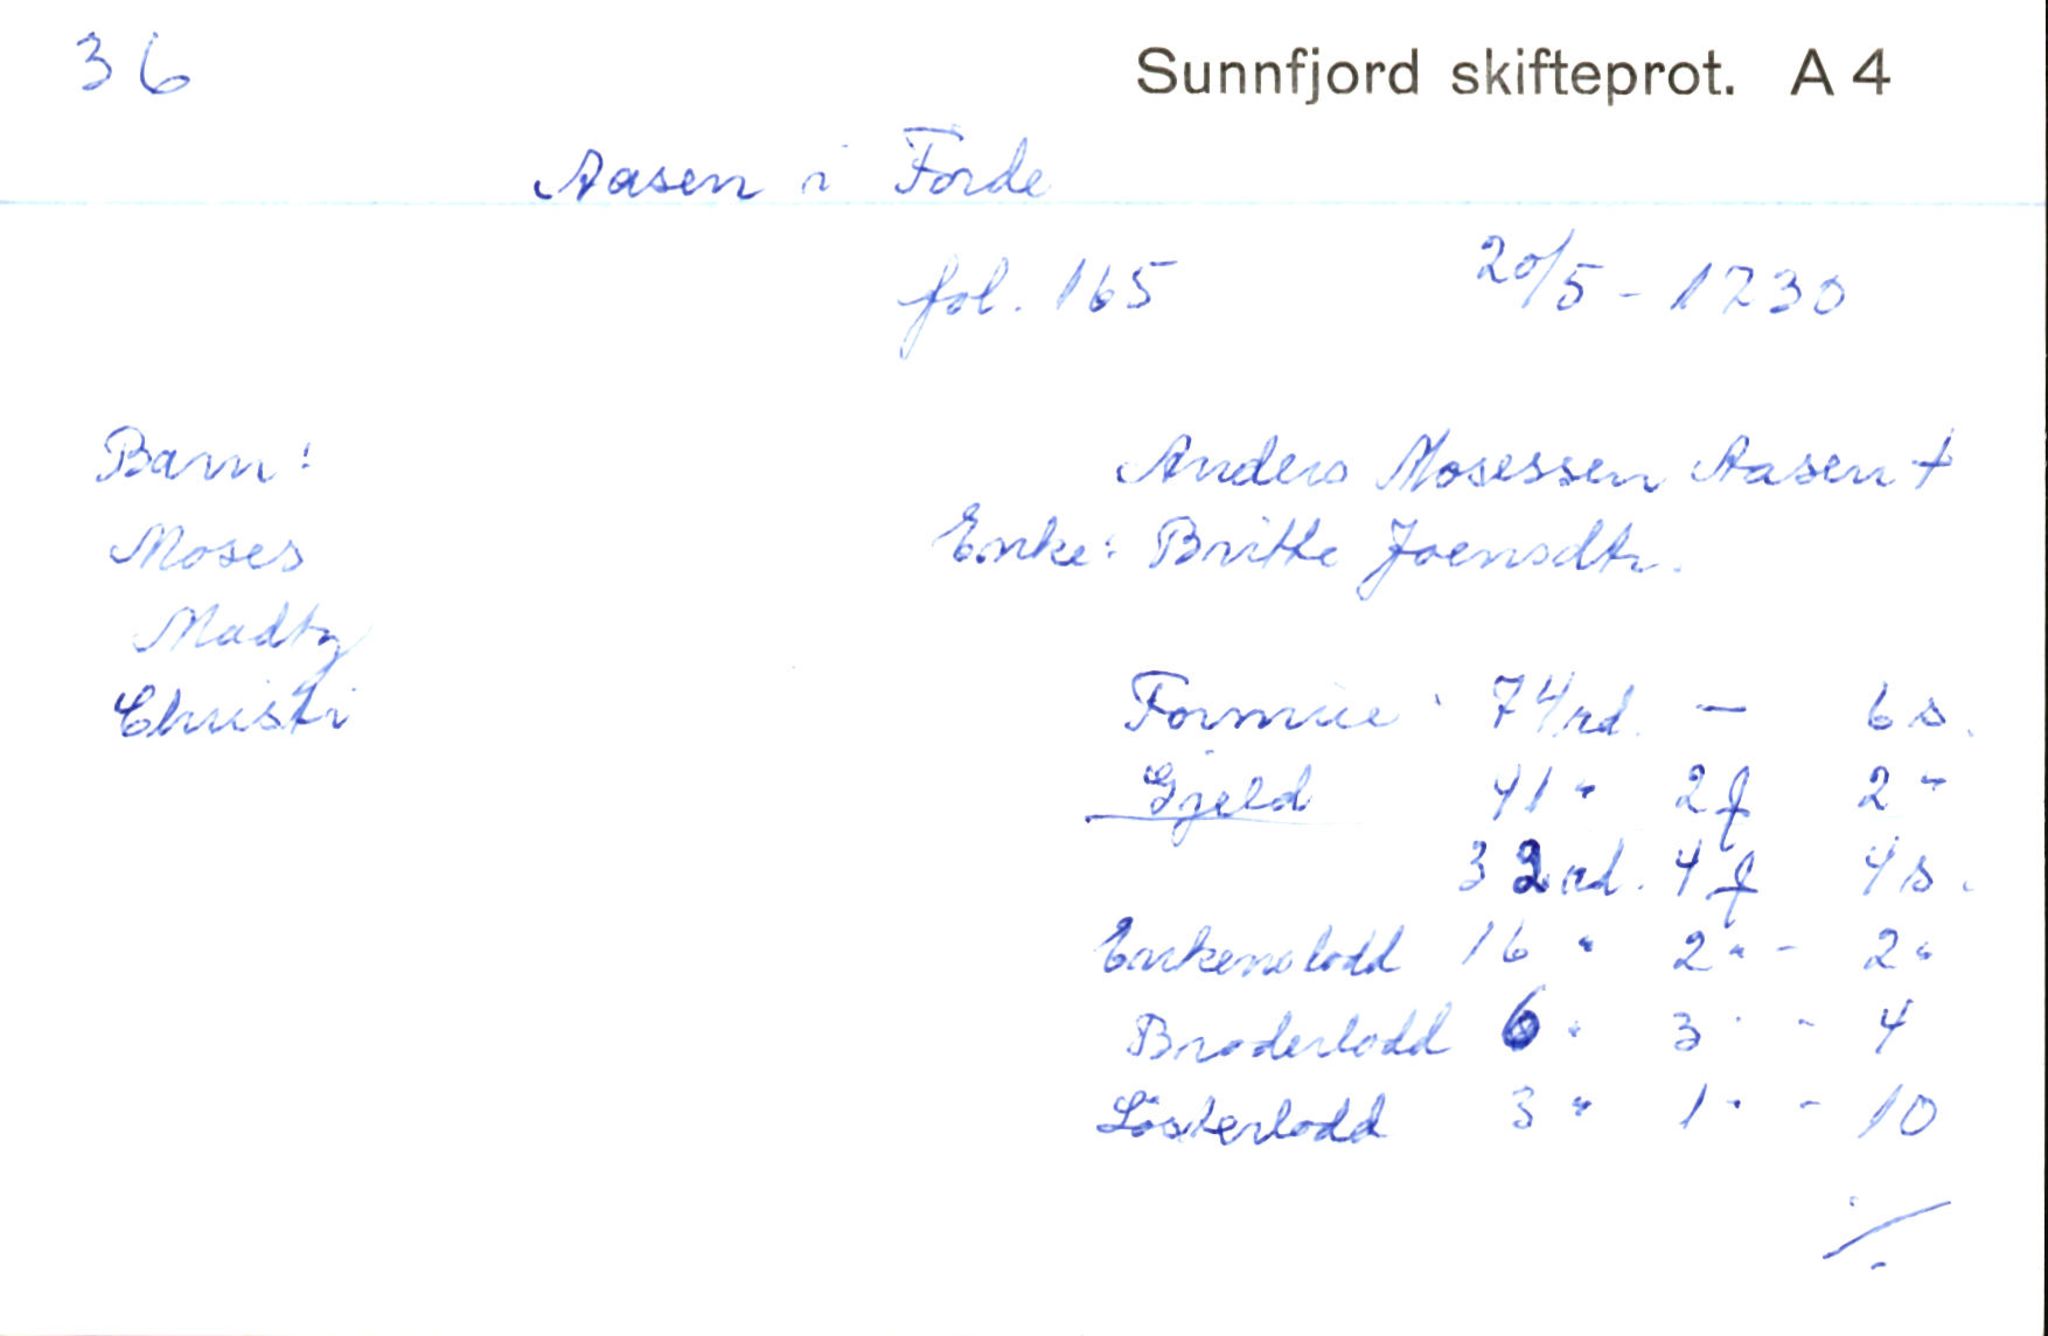 36
Sunnfjord skifteprot. A 4
Aasen i Førde
fol. 165 20/5 - 1730
Barn:
Moses
Madty
Christi
Anders Mosessen Aasen +
Enke: Britte Joensdtr.
Formue 74 rd. — 6 s.
Gjeld 41 " 2 f 2 "
32 rd. 4 f 4 s.
Enkens lodd 16 " 2 " - 2 "
Broderlodd 6 " 3 " - 4
Søsterlodd 3 " 1 " - 10
./.